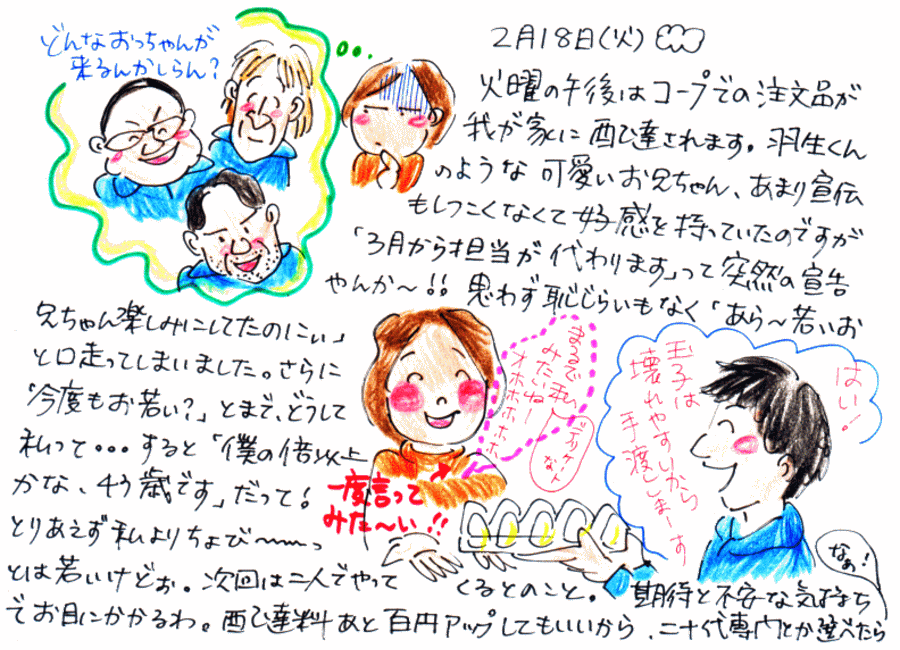 どんなおっちゃんが
来るんかしらん？
2月18日（火）
火曜の午後はコープでの注文品が
我が家に配達されます。羽生くん
のような可愛いお兄ちゃん、あまり宣伝
もしつこくなくて好感を持っていたのですが
「3月から担当が代わります」って突然の宣告
やんか～!! 思わず恥じらいもなく「あら～若いお
兄ちゃん楽しみにしてたのにぃ」
と口走ってしまいました。さらに
「今度もお若い？」とまで、どうして
私って・・・すると「僕の倍以上
かな、47歳です」だって！
とりあえず私よりちょび～～っ
とは若いけどぉ。次回は二人でやって
くるとのこと。期待と不安な気持ち
でお目にかかるわ。配達料あと百円アップしてもいいから、二十代専門とか選べたら
なぁ！
まるで私
みたいねー
オホホホホホ
デリケート
な
一度言って
みた～い!!
はい！
玉子は
壊れやすいから
手渡しまーす